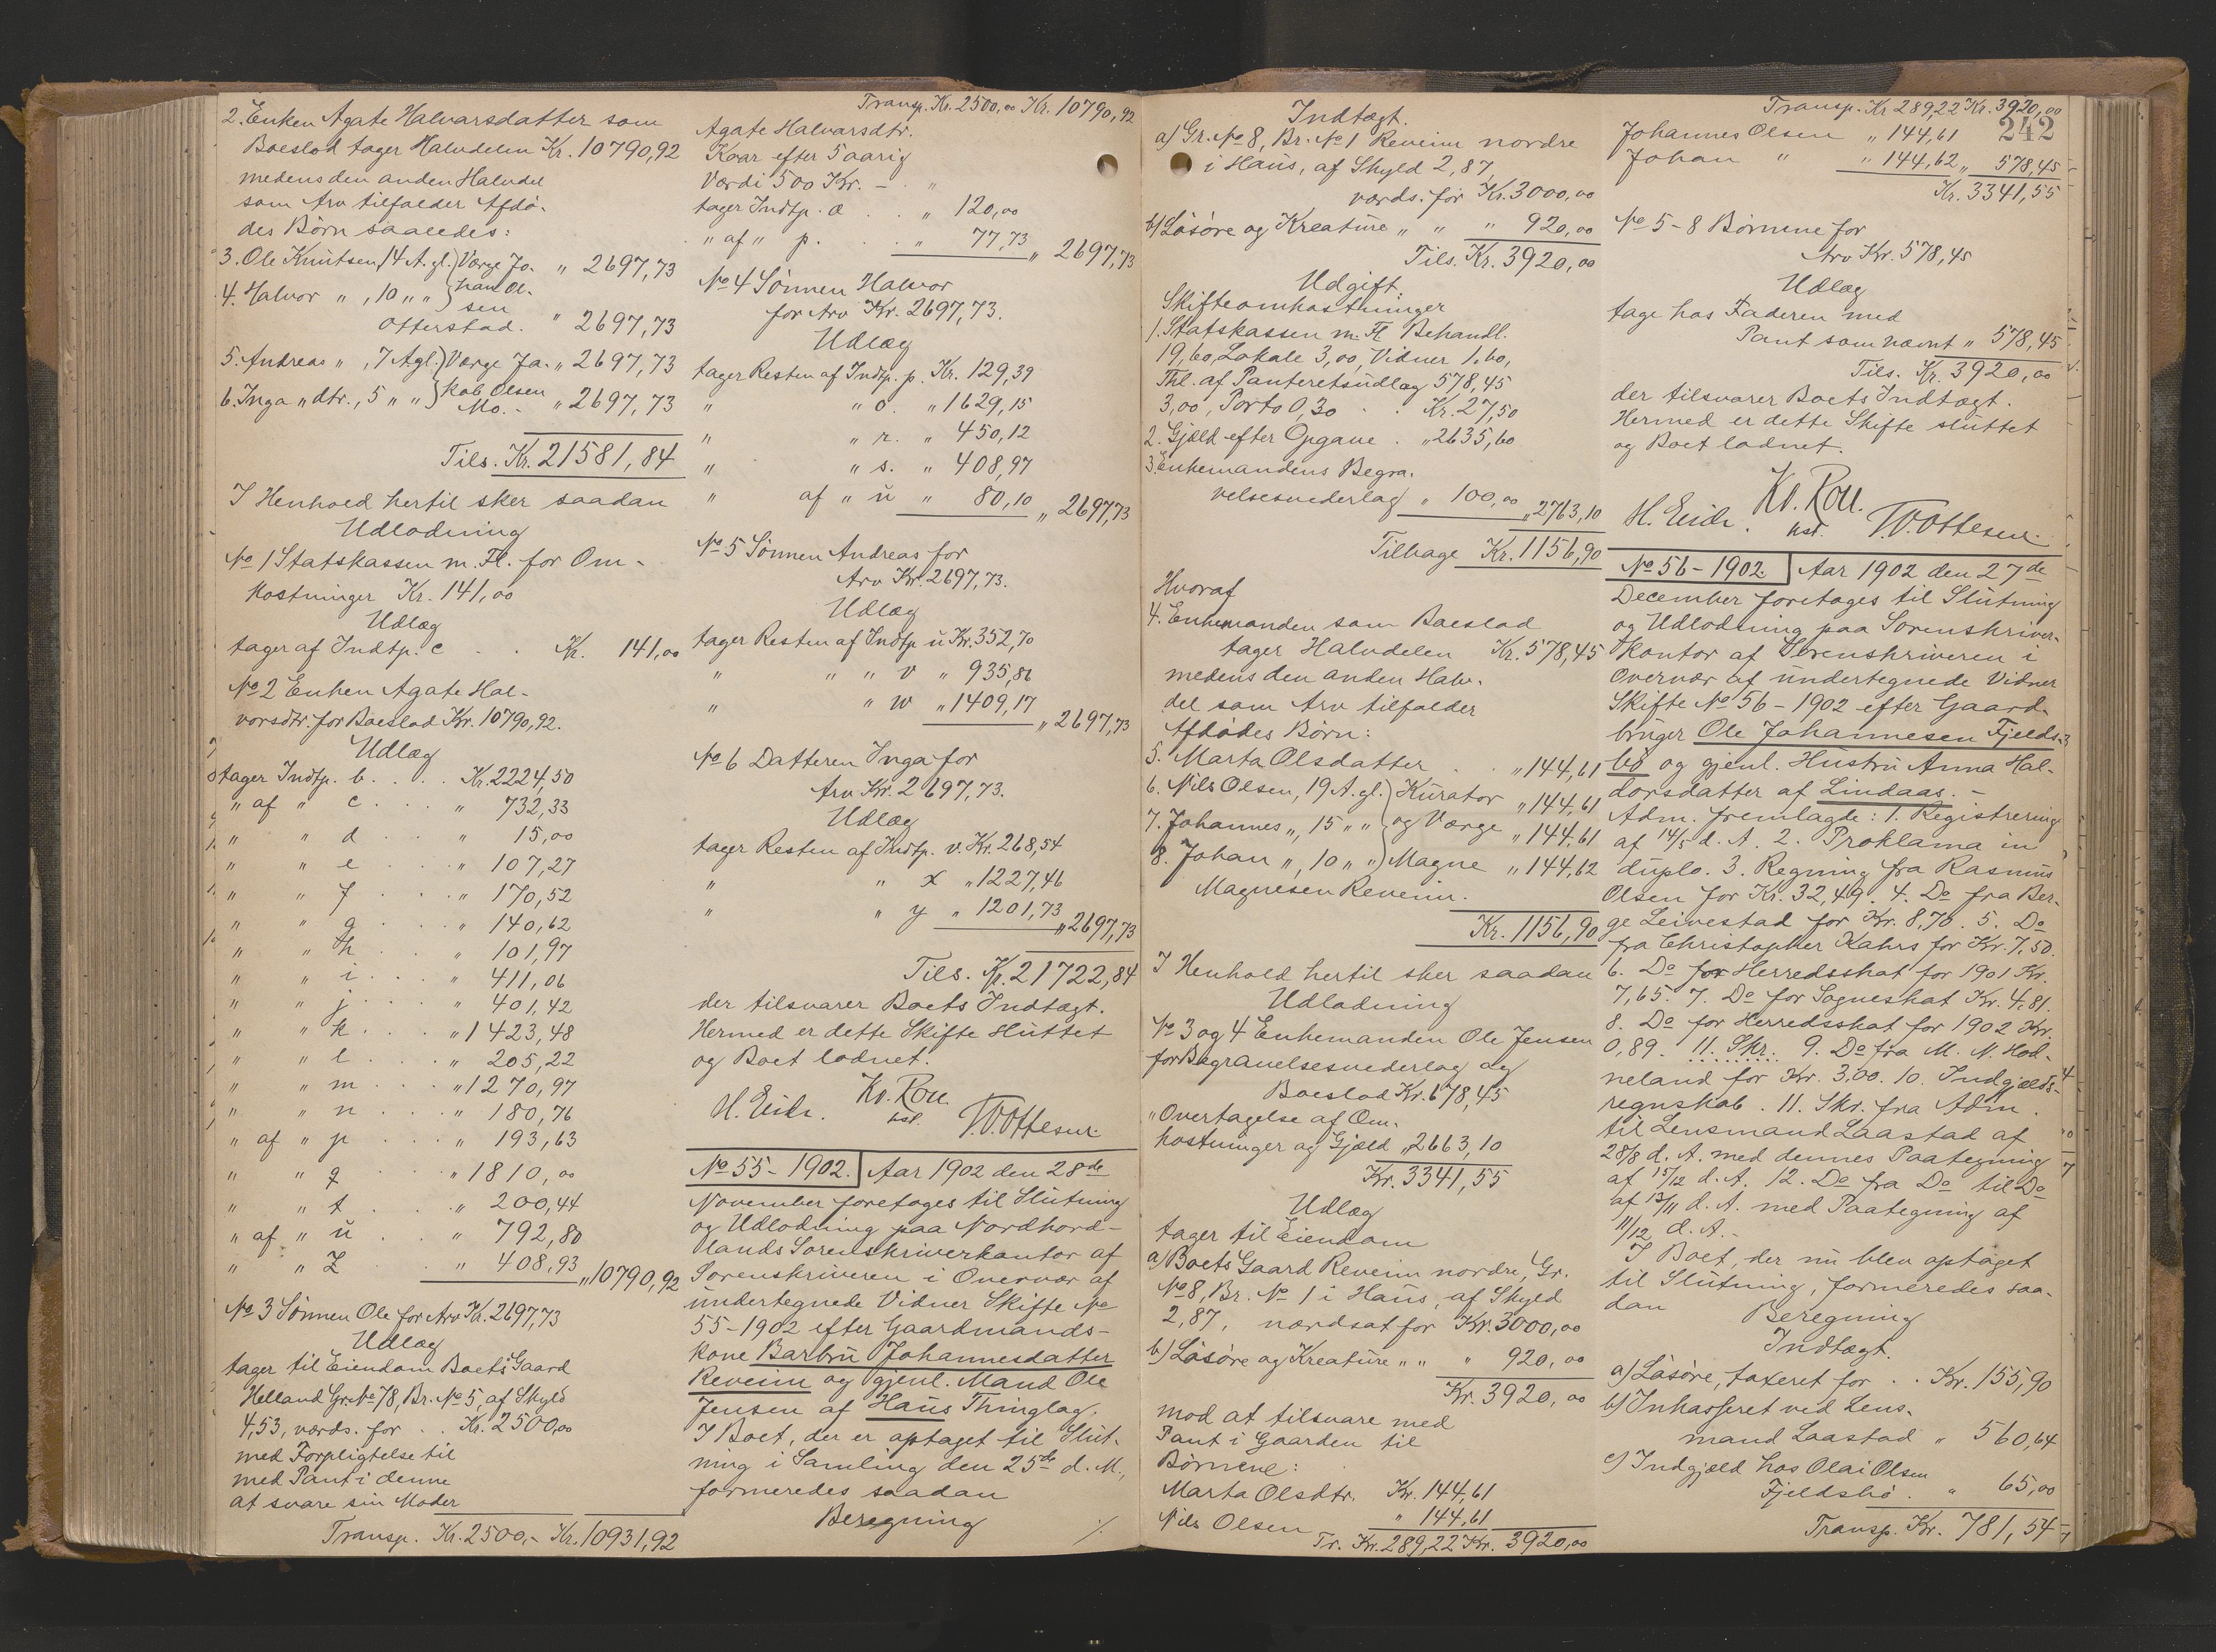 2. Enken Agate Halvarsdatter som
Boeslod tager Halvdelen Kr. 10790,92
medens den anden Halvdel
som Arv tilfalder Afdø-
des Børn saaledes:
3. Ole Knutsen, 14 A. gl. } Værge Jo- " 2697,73
4. Halvor " , 10 " " } han Ol-
sen
Otterstad. " 2697,73
5. Andreas " , 7 A gl. } Værge Ja- " 2697,73
6. Inga " dtr., 5 " " } kob Olsen
Mo. - " 2697,73
Tils. Kr. 21581,84
I Henhold hertil sker saadan
Udlodning
No 1 Statskassen m. Fl. for Om-
kostninger Kr. 141,00
Udlæg
tager af Indtp. c . . Kr. 141,00
No 2 Enken Agate Hal-
vorsdtr. for Boeslod Kr. 10790,92.
Udlæg
tager Indtp. b. . . . Kr. 2224,50
" af " c . . . " 732,33
" " d . . " 15,00
" " e . . . " 107,27
" " f . . . " 170,52
" " g . . . " 140,62
" " h . . . " 101,97
" " i . . . " 411,06
" " j . . . " 401,42
" " k . . . " 1423,48
" " l . . . " 205,22
" " m . . . " 1270,97
" " n . . . " 180,76
" af " p . . . " 193,63
" " q . . . " 1810,00
" " t . . . " 200,44
" af " u . . " 792,80
" " z . . " 408,93 " 10790,92
No 3 Sønnen Ole for Arv Kr. 2697,73
Udlæg
tager til Eiendom Boets Gaard
Helland Gr. No 78, Br. No 5, af Skyld
4,53, værds. for . . Kr. 2500,00
med Forpligtelse til
med Pant i denne
at svare sin Moder
Transp. Kr. 2500,- Kr. 10931,92
Transp. Kr. 2500,00 Kr. 10790,92
Agate Halvarsdtr.
Kaar efter 5 aarig
Værdi 500 Kr. - . "
tager Indtp. o . . " 120,00
" af " p. . . " 77,73 " 2697,73
No 4 Sønnen Halvor
for Arv Kr. 2697,73.
Udlæg
tager Resten af Indtp. p. Kr. 129,39
" " o. " 1629,15
" " r. " 450,12
" " s. " 408,97
" af " u " 80,10 " 2697,73
No 5 Sønnen Andreas for
Arv Kr. 2697,73.
Udlæg
tager Resten af Indtp u Kr. 352,70
" " " v " 935,86
" " w " 1409,17 " 2697,73
No 6 Datteren Inga for
Arv Kr. 2697,73.
Udlæg
tager Resten af Indtp. v. Kr. 268,54
" " x " 1227,46
" " y " 1201,73 " 2697,73
Tils. Kr. 21722,84
der tilsvarer Boets Indtægt.
Hermed er dette Skifte sluttet
og Boet lodnet.
H. Eide. Kr. Rou. T. O. Ottesen.
kst.
No 55 - 1902. Aar 1902 den 28de
November foretoges til Slutning
og Udlodning paa Nordhord-
lands Sorenskriverkontor af
Sorenskriveren i Overvær af
undertegnede Vidner Skifte No
55-1902 efter Gaardmands-
kone Barbru Johannesdatter
Reveim og gjenl. Mand Ole
Jensen af Haus Thinglag.
I Boet, der er optaget til Slut-
ning i Samling den 25de d. M.,
formeredes saadan
Beregning
./.
Indtægt.
a) Gr. No 8, Br. No 1 Reveim nordre
i Haus, af Skyld 2,87,
værds. for Kr. 3000,00
b) Løsøre og Kreature " " " 920,00
Tils. Kr. 3920,00
Udgift.
Skifteomkostninger
1. Statskassen m. Fl. Behandl.
19,60, Lokale 3,00, Vidner 1,60,
Thl. af Panteretsudlæg 578,45
3,00, Porto 0,30 . . Kr. 27,50
2. Gjæld efter Opgave . " 2635,60
3. Enkemandens Begra-
velsesvederlag " 100,00 " 2763,10
Tilbage Kr. 1156,90
Hvoraf
4. Enkemanden som Boeslod
tager Halvdelen Kr. 578,45
medens den anden Halv-
del som Arv tilfalder
Afdødes Børn:
5. Marta Olsdatter . . " 144,61
6. Nils Olsen, 19 A. gl. } Kurator " 144,61
7. Johannes " , 15 " " } og Værge " 144,61
8. Johan " , 10 " " } Magne " 144,62
Magnesen Reveim.
Kr. 1156,90
I Henhold hertil sker saadan
Udlodning
No 3 og 4 Enkemanden Ole Jensen
for Begravelsesvederlag og
Boeslod Kr. 678,45
" Overtagelse af Om-
kostninger og Gjæld " 2663,10
Kr. 3341,55
Udlæg
tager til Eiendom
a) Boets Gaard Reveim nordre, Gr.
No 8, Br. No 1 i Haus, af Skyld
2,87, værdsat for Kr. 3000,00
b) Løsøre og Kreature " " " 920,00
Kr. 3920,00
mod at tilsvare med
Pant i Gaarden til
Børnene:
Marta Olsdtr. Kr. 144,61
Nils Olsen " 144,61
Tr. Kr. 289,22 Kr. 3920,00
Transp. Kr 289,22 Kr. 3920,00
242
Johannes Olsen " 144,61
Johan " " 144,62 " 578,45
Kr. 3341,55
No 5-8 Børnene for
Arv Kr. 578,45
Udlæg
tage hos Faderen med
Pant som nævnt " 578,45
Tils. Kr. 3920,00
der tilsvarer Boets Indtægt.
Hermed er dette Skifte sluttet
og Boet lodnet.
H. Eide. Kr. Rou. T. O. Ottesen.
kst.
No 56 - 1902. Aar 1902 den 27de
December foretoges til Slutning
og Udlodning paa Sorenskriver-
kontor af Sorenskriveren i
Overvær af undertegnede Vidner
Skifte No 56 - 1902 efter Gaard-
bruger Ole Johannesen Fjelds-
bø og gjenl. Hustru Anna Hal-
dorsdatter af Lindaas. -
Adm. fremlagde: 1. Registrering
af 14/5 d. A. 2. Proklama in
duplo. 3. Regning fra Rasmus
Olsen for Kr. 32,49. 4. Do fra Ber-
ge Leivestad for Kr. 8,70. 5. Do
fra Christopher Kahrs for Kr. 7,50.
6. Do for Herredsskat for 1901 Kr.
7,65. 7. Do for Sogneskat Kr. 4,81.
8. Do for Herredsskat for 1902 Kr.
0,89. 11. Skr. 9. Do fra M. N. Hod-
neland for Kr. 3,00. 10. Indgjælds-
regnskab. 11. Skr. fra Adm.
til Lensmand Laastad af
28/8 d. A. med dennes Paategning
af 15/12 d. A. 12. Do fra Do til Do
af 13/11 d. A. med Paategning af
11/12 d. A. -
I Boet, der nu blev optaget
til Slutning, formeredes saa-
dan Beregning
Indtægt.
a) Løsøre, taxeret for . . Kr. 155,90
b) Inkasseret ved Lens-
mand Laastad " 560,64
c) Indgjæld hos Olai Olsen
Fjeldsbø . " 65,00
Transp. Kr. 781,54